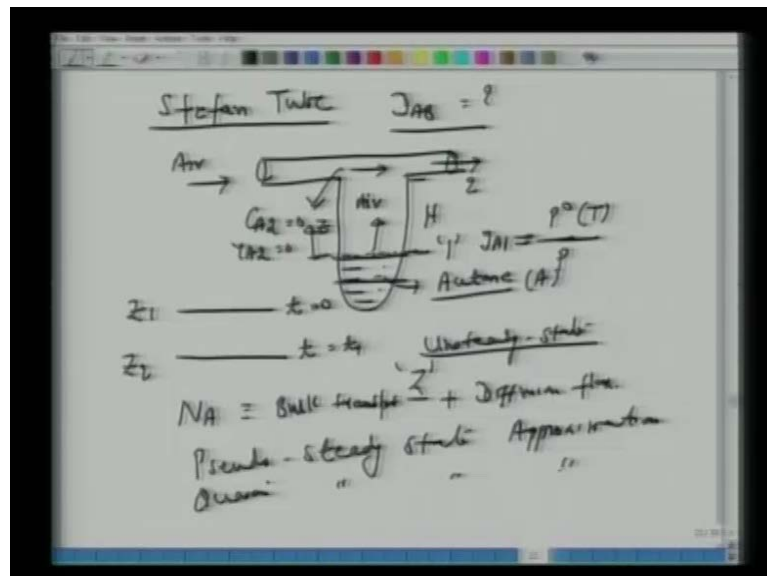 Stefan Tube J_AB = ?
Air
Air
H
C_A2 = 0 z
y_A2 = 0
'1' y_A1 = P°(T) / P
Acetone (A)
z1 t=0
z2 t = t1 Unsteady-state
'Z'
N_A = Bulk transfer + Diffusion flux
Pseudo-steady state Approximation
Quasi " " "